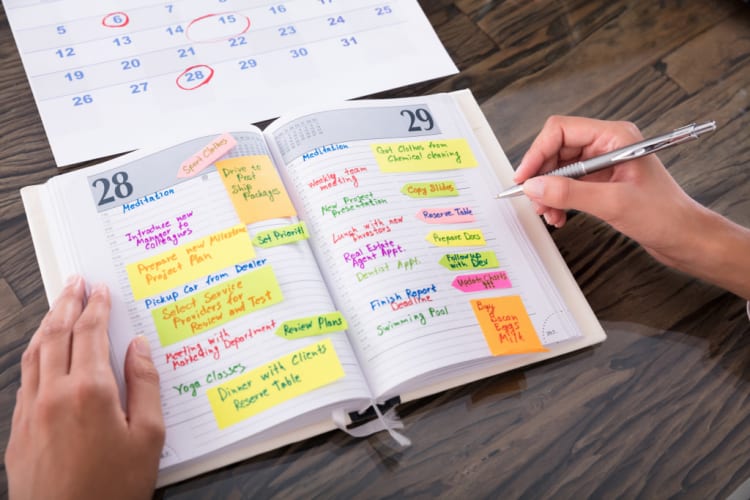 6
16
17
18
5
13
14
15
24
25
12
20
21
22
23
19
27
28
29
30
31
26
28
Sport Clothes
Meditation
Drive to
Post
Ship Packages
Introduce new
Manager to
colleagues
Set Priority
Prepare new Milestone
Project Plan
Pickup Car from Dealer
Select Service
Providers for
Review and Test
Review Plans
Meeting with
Marketing Department
Yoga Classes
Dinner with Clients
Reserve Table
29
Meditation
Get Clothes from
Chemical cleaning
Weekly team
meeting
Copy Slides
New Project
Presentation
Reserve Table
Lunch with new
Investors
Prepare Docs
Real Estate
Agent Appt.
Follow up
with Dev
Dentist Appt.
Update Charts
!!!
Finish Report
Deadline
Buy
Bacon
Eggs
Milk
Swimming Pool